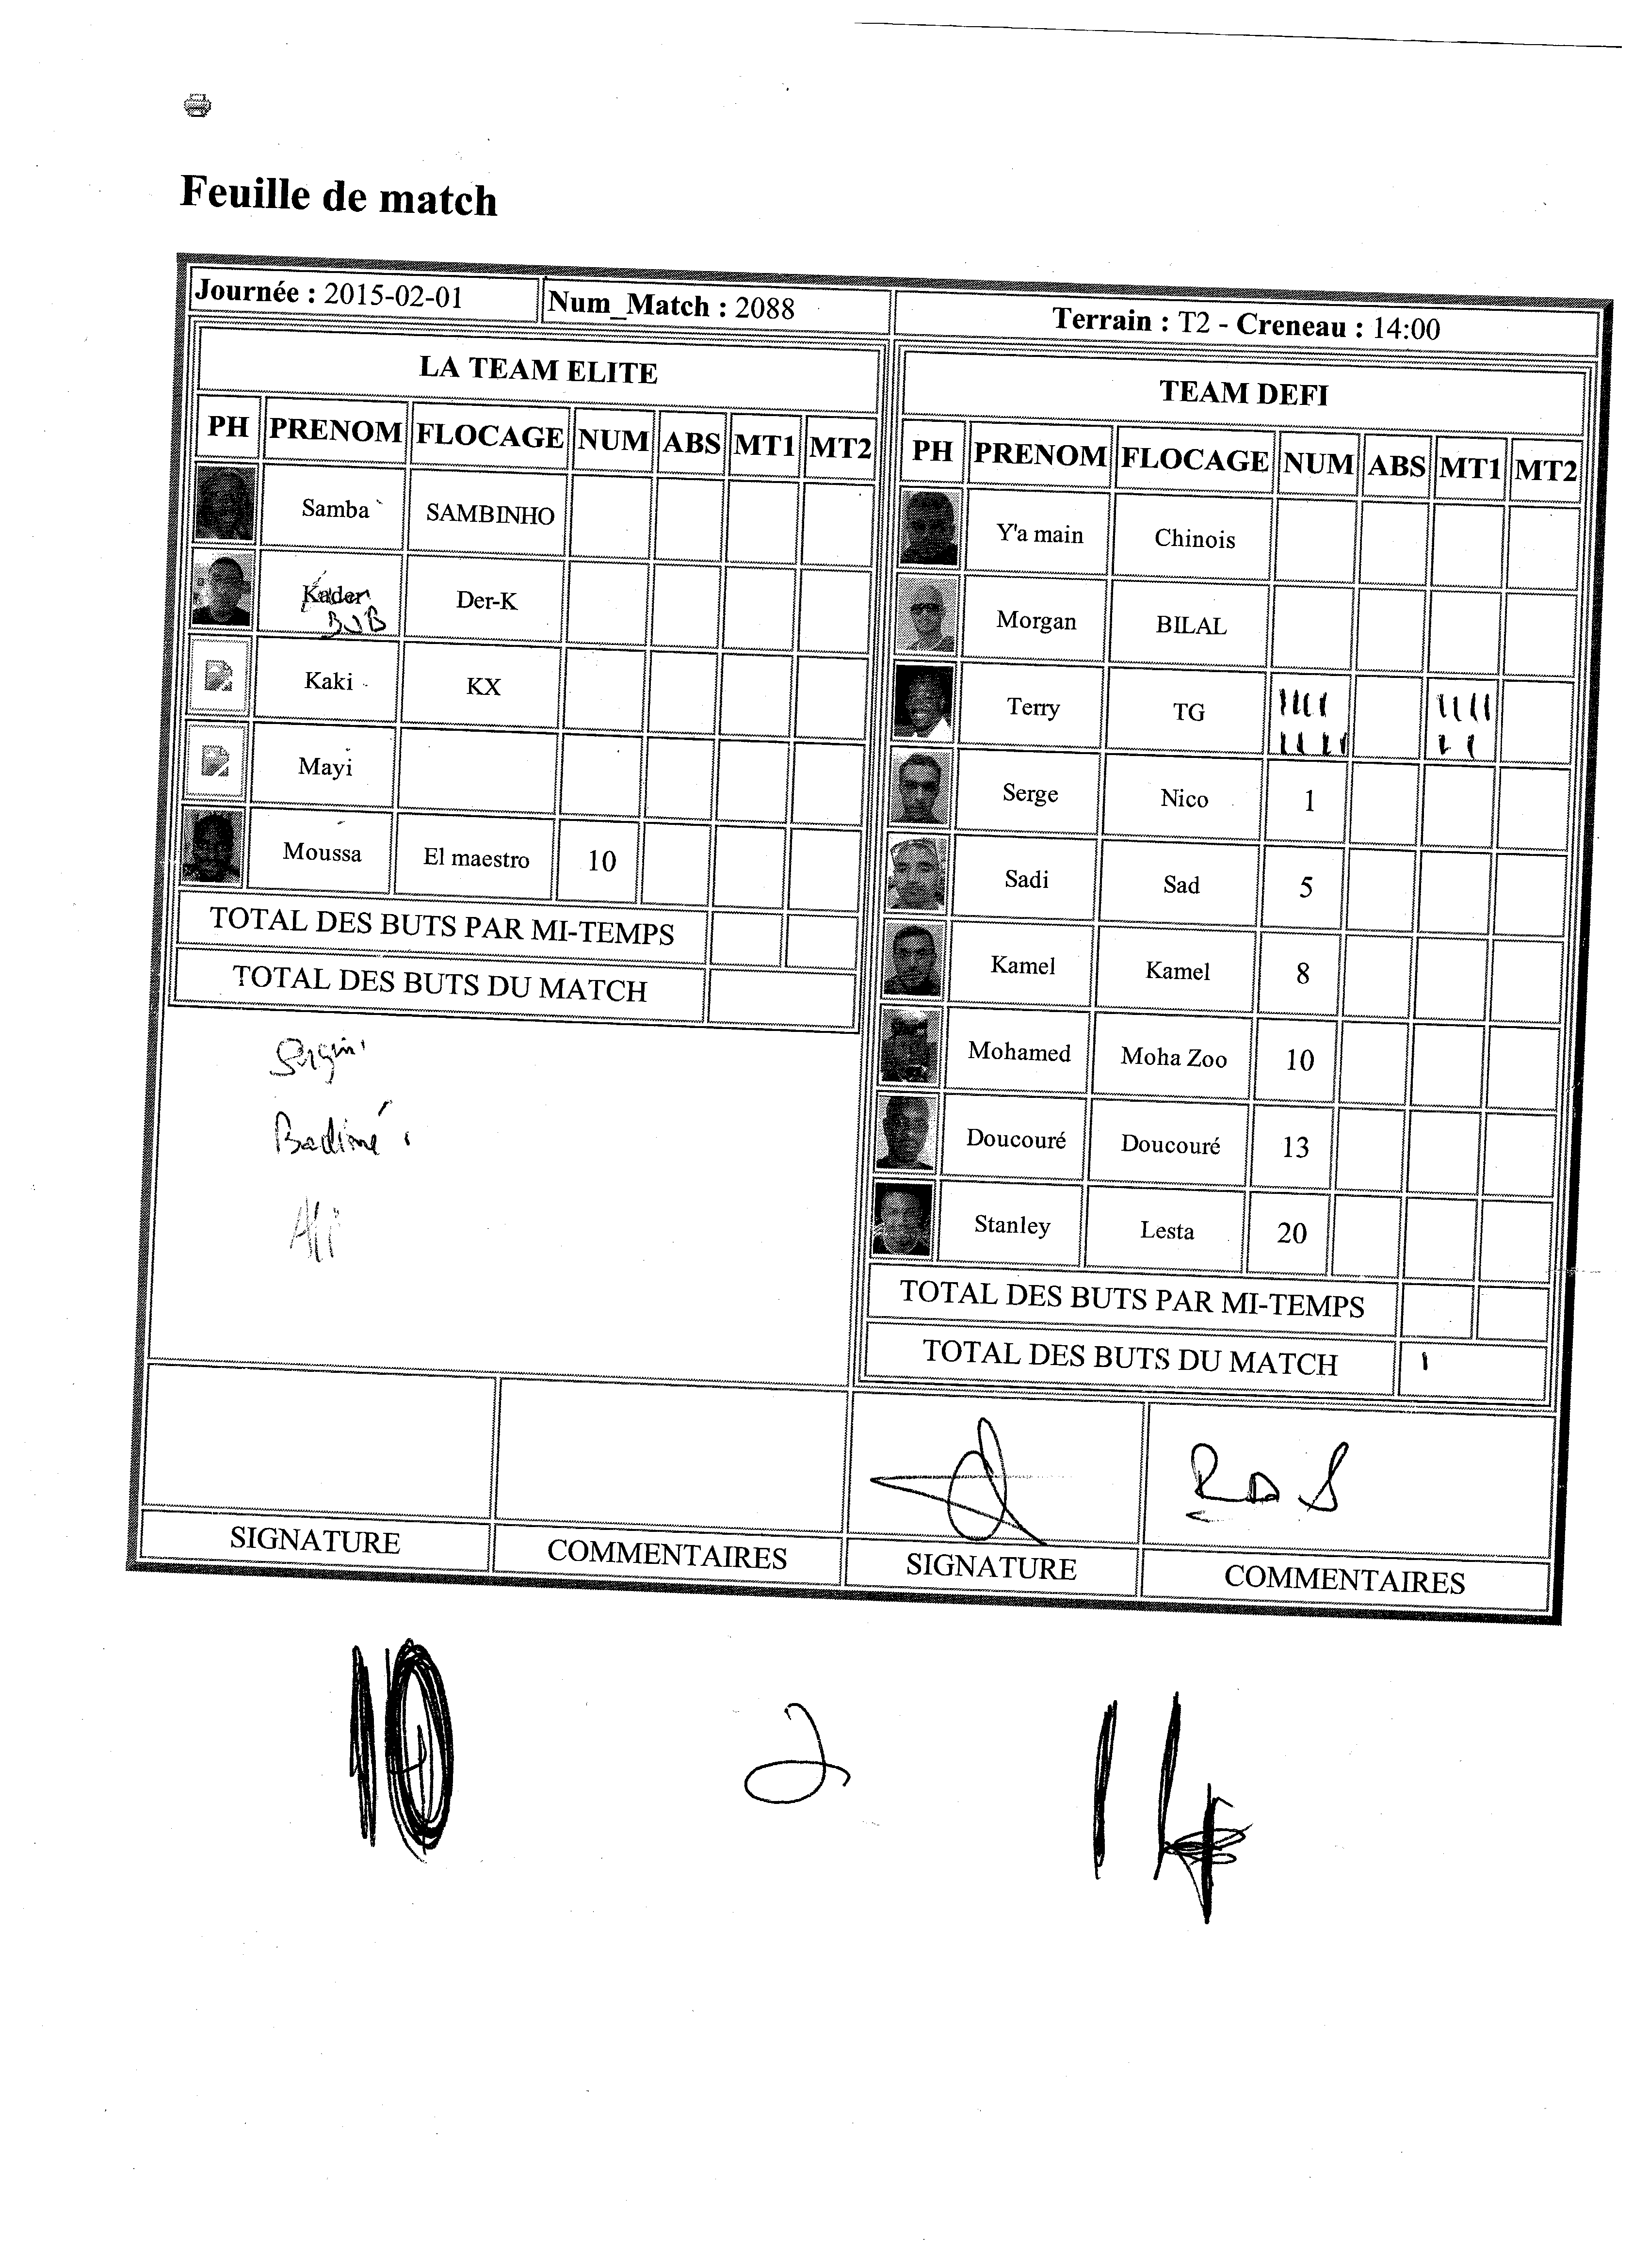 Feuille de match
Journée : 2015-02-01 Num_Match : 2088 Terrain : T2 - Creneau : 14:00
LA TEAM ELITE
PH PRENOM FLOCAGE NUM ABS MT1 MT2
Samba SAMBINHO
Kader Der-K
BUB
Kaki KX
Mayi
Moussa El maestro 10
TOTAL DES BUTS PAR MI-TEMPS
TOTAL DES BUTS DU MATCH
Badimé
TEAM DEFI
PH PRENOM FLOCAGE NUM ABS MT1 MT2
Y'a main Chinois
Morgan BILAL
Terry TG IIII IIII
IIII II
Serge Nico 1
Sadi Sad 5
Kamel Kamel 8
Mohamed Moha Zoo 10
Doucouré Doucouré 13
Stanley Lesta 20
TOTAL DES BUTS PAR MI-TEMPS
TOTAL DES BUTS DU MATCH I
RAS
SIGNATURE COMMENTAIRES SIGNATURE COMMENTAIRES
10 2 14